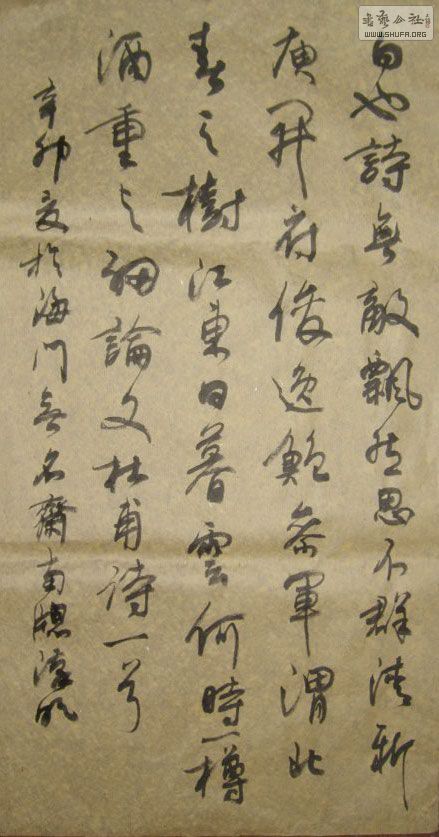 書藝公社
WWW.SHUFA.ORG
白也詩無敵飄然思不群清新
庾開府俊逸鮑參軍渭北
春天樹江東日暮雲何時一樽
酒重与細論文杜甫詩一首
辛卯夏於海門無名齋南窗